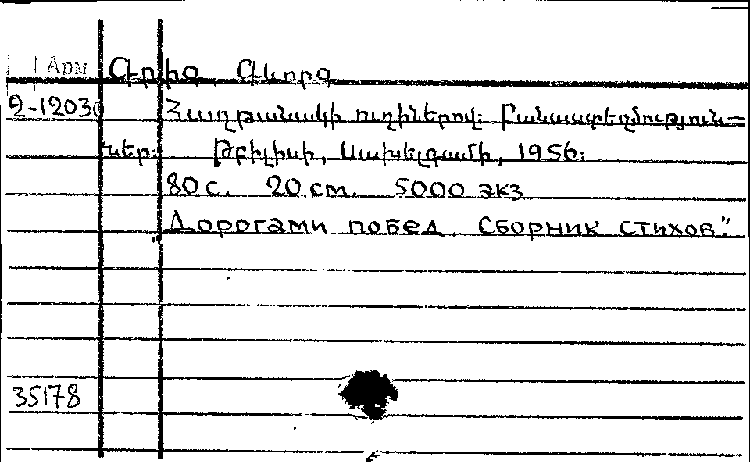 Арм Գրիգ Գևորգ
Զ-12030 Հաղթանակի ուղիներով: Բանաստեղծություն-
ներ: Թբիլիսի, Սախելգամի, 1956:
80 с. 20 см. 5000 экз
"Дорогами побед. Сборник стихов."
35178